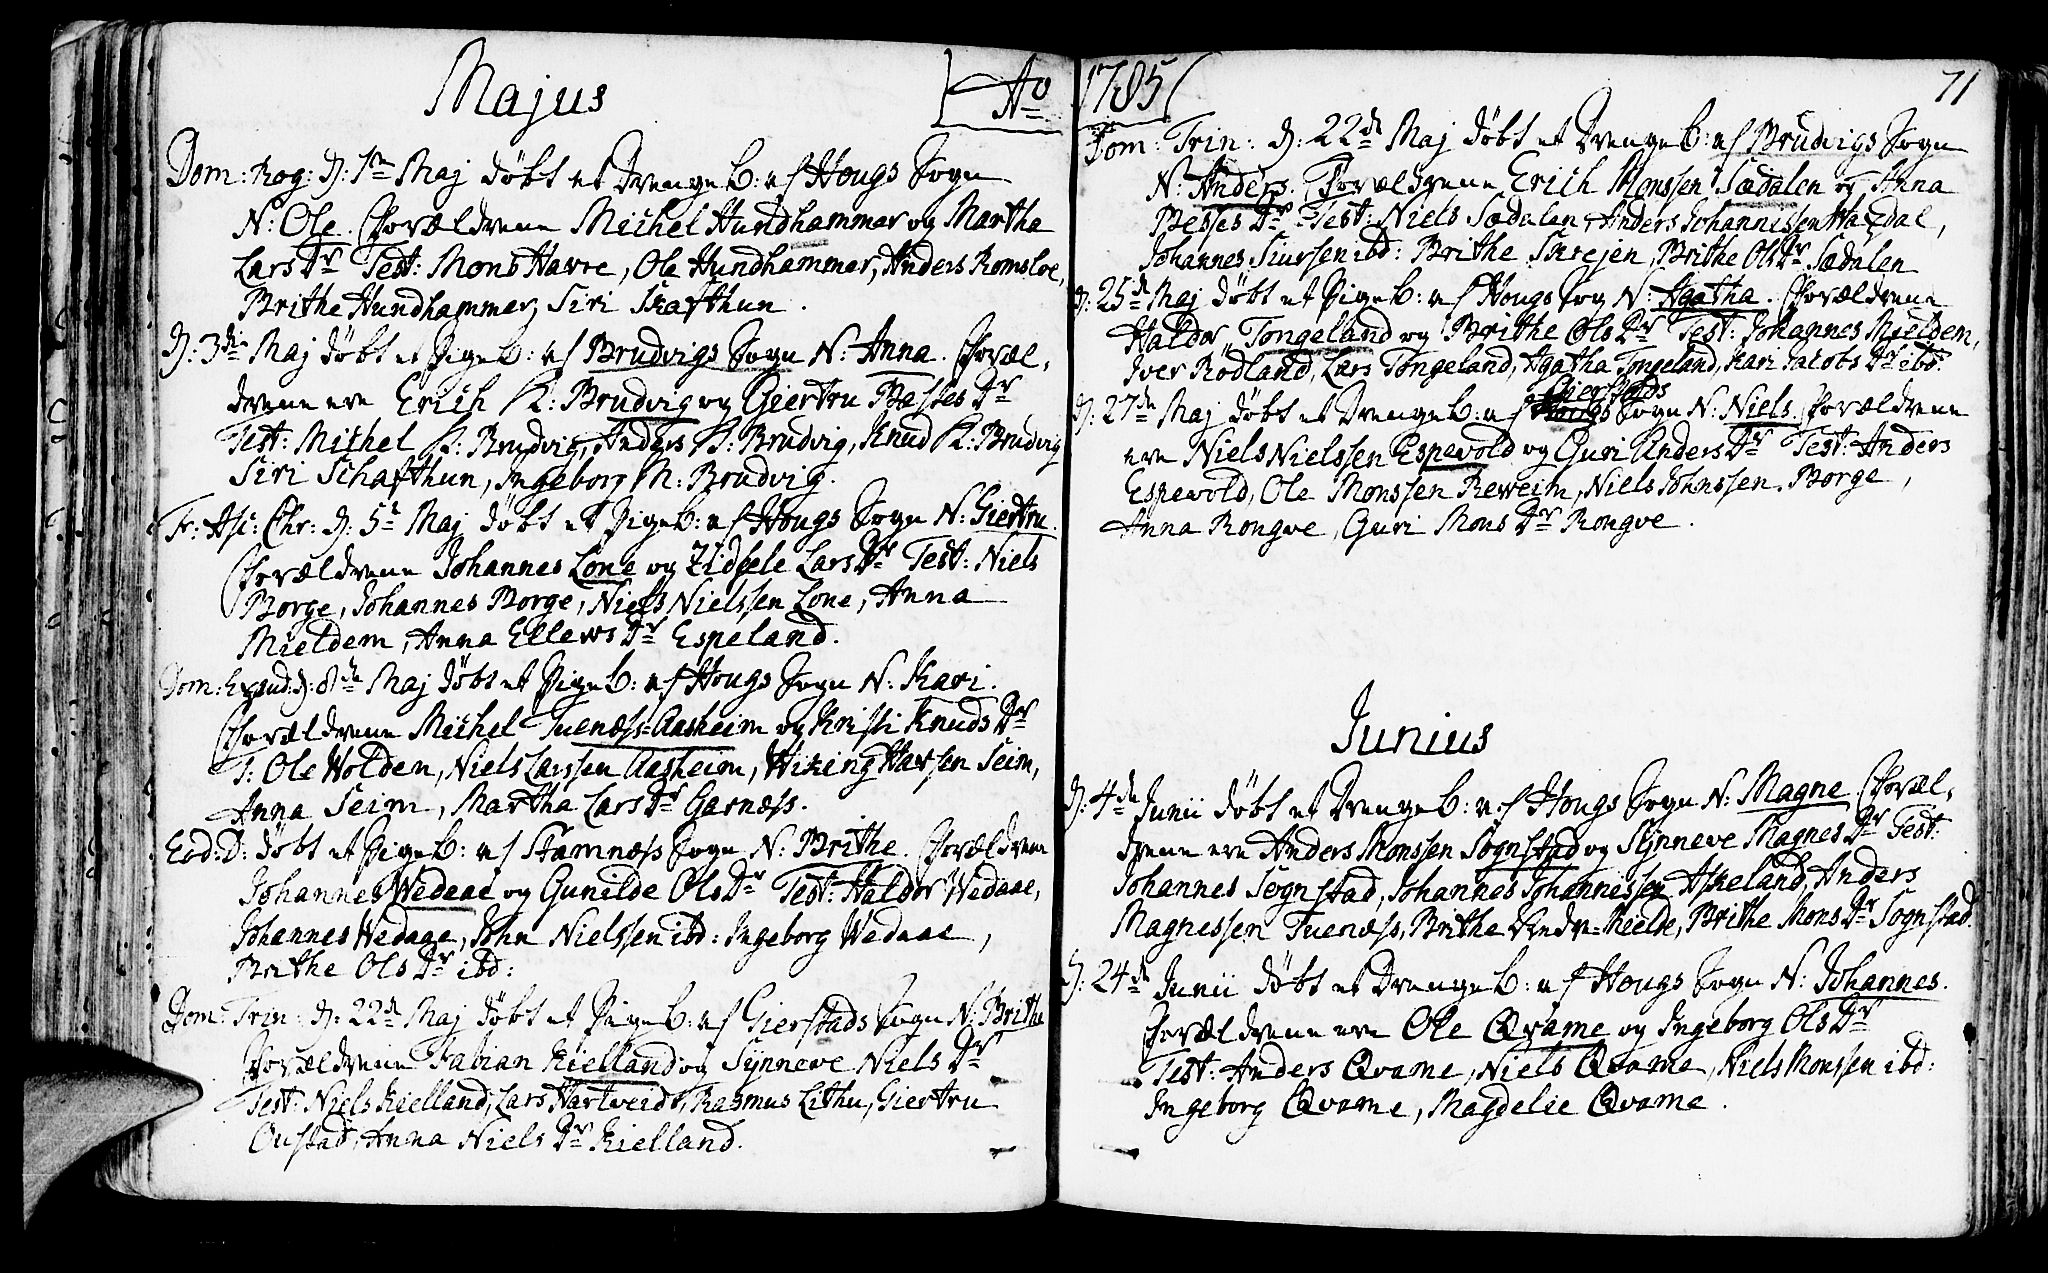 Majus
Dom: Rog: d: 1te Maj døbt et Drengeb: af Hougs Sogn
N: Ole. Forældrene Michel Hundhammer og Martha
Lars Dr Test: Mons Havre, Ole Hundhammer, Anders Romsloe,
Brithe Hundhammer, Siri Skafthun.
d: 3die Maj døbt et Pigeb: af Brudvigs Sogn N: Anna. Foræl,
drene ere Erich K: Brudvig og Giertru Bæsses Dr
Test: Michel K: Brudvig, Anders K: Brudvig, Knud K: Brudvig
Siri Schafthun, Ingeborg M: Brudvig.
Fr: Asc: Chr: d: 5te Maj døbt et Pigeb: af Hougs Sogn N: Giertru.
Forældrene Johannes Lone og Zidsele Lars Dr Test: Niels
Borge, Johannes Borge, Niels Nielssen Lone, Anna
Mieldem, Anna Ellews Dr Espeland.
Dom: Exaud: d: 8de Maj døbt et Pigeb: af Hougs Sogn N: Kari.
Forældrene Michel Tuenæss-Aasheim og Kristi Knuds Dr
T: Ole Wolden, Niels Larssen Aasheim, Wiking Havsen Seim,
Anna Seim, Martha Lars Dr Garnæss.
Eod: D: døbt et Pigeb: af Stamnæss Sogn N: Brithe. Forældrene
Johannes Wedaae og Gunilde Ols Dr Test: Haldor Wedaae,
Johannes Wedaae, John Nielssen ibd: Ingeborg Wedaae,
Brithe Ols Dr ibd:
Dom: Trin: d: 22de Maj døbt et Pigeb: af Gierstads Sogn N: Brithe
Forældrene Fabian Kielland og Synneve Niels Dr
Test: Niels Kielland, Lars Hartveidt, Rasmus Lithu, Giertru
Oustad, Anna Niels Dr Kielland.
Ao 1785
71
Dom: Trin: d: 22de Maj døbt et Drengeb: af Brudvigs Sogn
N: Anders. Forældrene Erich Monssen Sædalen og Anna
Besses Dr Test: Niels Sædalen, Anders Johannessen Waxdal,
Johannes Siursen ibd: Brithe Skrejen, Brithe Ols Dr Sædalen
d: 25de Maj døbt et Pigeb: af Hougs Sog N: Agatha. Forældrene
Haldor Tongeland og Brithe Ols Dr Test: Johannes Mieldem,
Iver Rødland, Lars Tongeland, Agatha Tongeland, Kari Jacobs Dr ibd:
Gierstads
d: 27de Maj døbt et Drengeb: af Hougs Sogn N: Niels. Forældrene
ere Niels Nielssen Espevold og Guri Anders Dr Test: Anders
Espevold, Ole Monssen Reweim, Niels Johnssen Borge,
Anna Rongve, Guri Mons Dr Rongve.
Junius
d: 4de Junii døbt et Drengeb: af Hougs Sogn N: Magne Foræl,
drene ere Anders Monssen Sognstad og Synneve Magnes Dr Test:
Johannes Sognstad, Johannes Johannessen Askeland, Anders
Magnessen Tuenæss, Brithe Indre-Kielde, Brithe Mons Dr Sognstad.
d: 24de Junii døbt et Drengeb: af Hougs Sogn N: Johannes.
Forældrene ere Ole Qvame og Ingeborg Ols Dr
Test: Anders Qvame, Niels Qvame, Niels Monssen ibd:
Ingeborg Qvame, Magdelie Qvame.